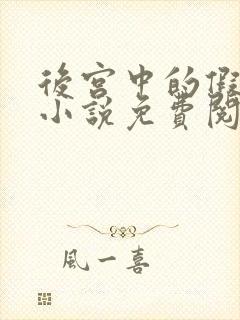 後宮中的假
小說免費閱
風一喜